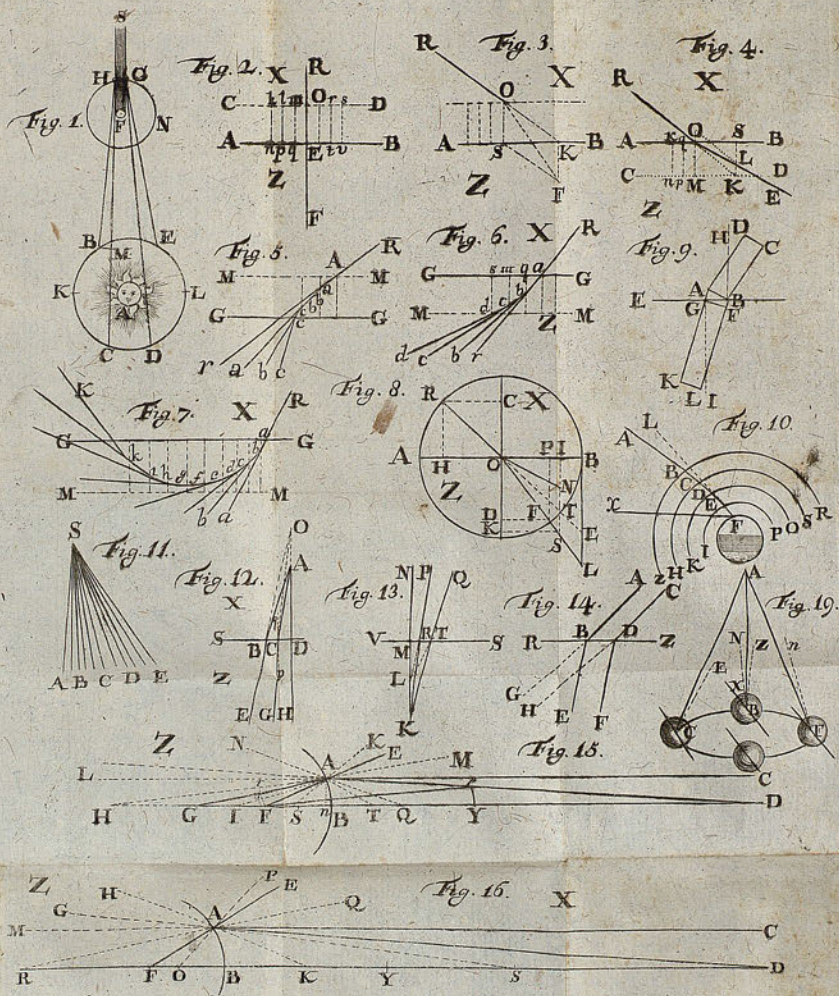 S
H G
Fig. 1.
F N
B E
M
K L
A
C D
Fig. 2.
X R
C k l m O r s D
A n p q E t v B
Z
F
Fig. 3.
R
O X
A S K B
Z F
Fig. 4.
R X
A O S B
L
C n p M K D
E
Z
Fig. 5.
A R
M M
G c G
r a b c
Fig. 6.
X R
G s m q a G
b
d c
M Z M
d c b r
Fig. 9.
D
H C
E A B
G F
K
L I
Fig. 7.
K X R
G a G
k
M M
b a
Fig. 8.
R C X
A H O P I B
Z N
D F T
K E
S
L
Fig. 10.
L
A
B
C
D
E
x F P O S R
I
K
H
z
Fig. 11.
S
A B C D E
Fig. 12.
O
A
X
S B C D
Z p
E G H
Fig. 13.
N P Q
V M R T S
L
K
Fig. 14.
A C
R B D Z
G
H
E F
Fig. 19.
A
N Z n
E
X
B
C F
C
Fig. 15.
Z N K E
A M
L C
H G I F S n B T Q Y D
Fig. 16.
Z H P E
G A Q X
M C
R F O B K Y S D